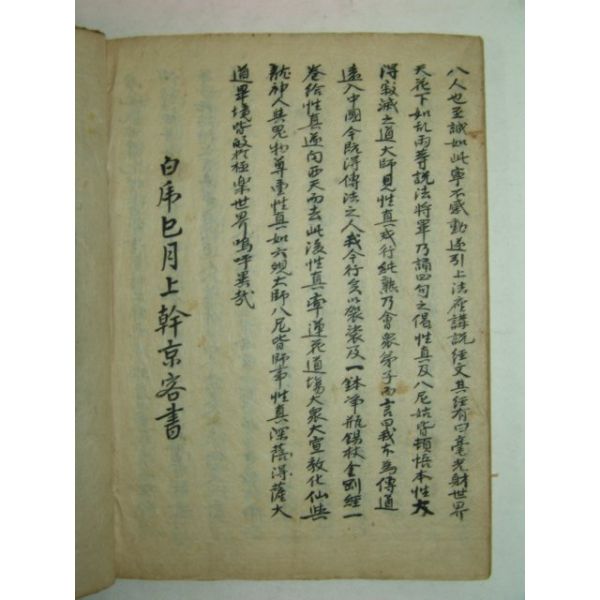 八人也至誠如此寧不感動遂引上法座講說經文其經有曰毫光射世界
天花下如乱雨等說法將畢乃誦四句之偈性真及八尼姑皆頓悟本性大
得寂滅之道大師見性真戒行純熟乃會衆弟子而言曰我本為傳道
遠入中國今旣得傳法之人我今行矣以袈裟及一鉢净瓶錫杖金剛經一
卷給性真遂向西天而去此後性真率蓮花道場大衆大宣教化仙與
龍神人與鬼物尊重性真如六觀大師八尼皆師事性真深得薩大
道畢境皆歸於極楽世界嗚呼異哉
白虎巳月上幹京客書